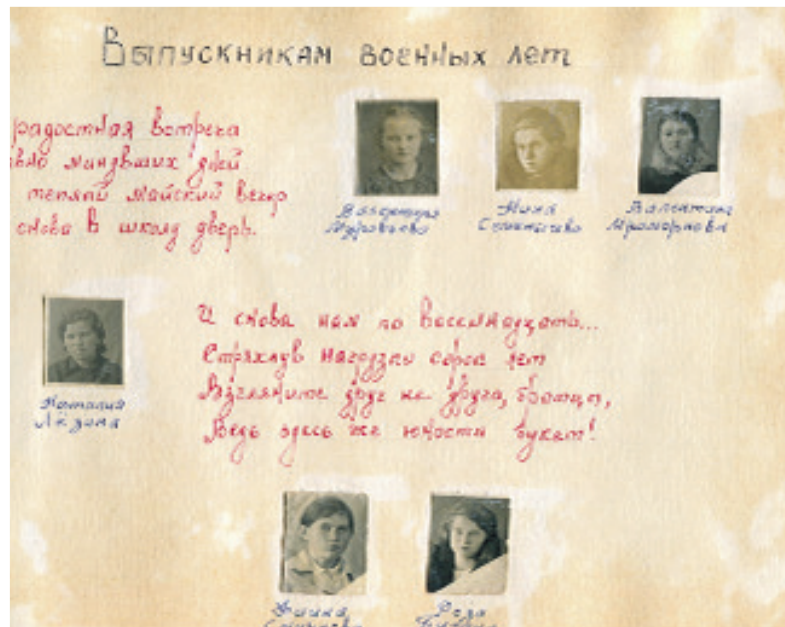 Выпускникам военных лет
радостная встреча
вно минувших дней
теплый майский вечер
снова в школу дверь.
Валентина
Муравьева
Нина
Валентина
И снова нам по восемнадцать...
Стряхнув нагрузки сорок лет
Взгляните друг на друга, братцы,
Ведь здесь же юности букет!
Наталия
Лязина
Роза